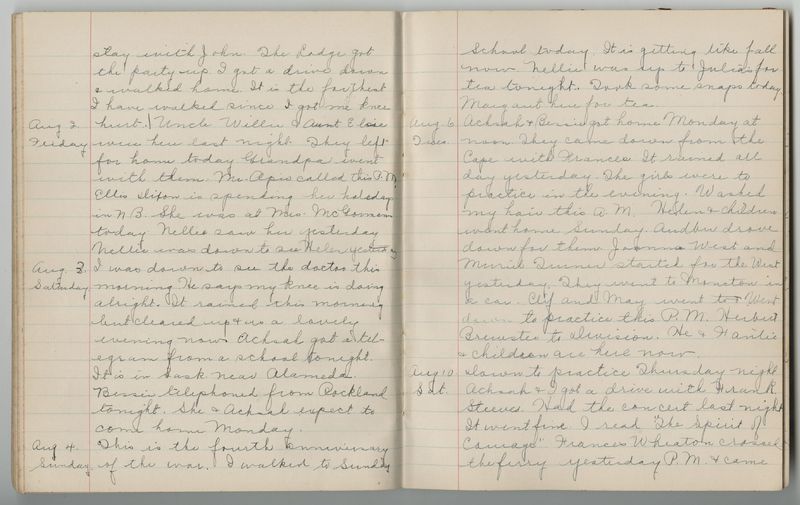 stay with John. The Lodge got
the party up. I got a drive down
& walked home. It is the farthest
I have walked since I got me knee
Aug 2. hurt. Uncle Willie & Aunt Elsie
Friday were here last night. They left
for home today Grandpa went
with them. Mr. Apis called this P.M.
Ellis Dixon is spending her holidays
in N.B. She was at Mrs. McGorman
today Nellie saw her yesterday
Nellie was down to see Helen yesterday
Aug 3. I was down to see the doctor this
Saturday morning. He says my knee is doing
alright. It rained this morning
but cleared up & is a lovely
evening now. Achsah got a tel-
egram from a school tonight.
It is in Sask near Alameda.
Bessie telephoned from Rockland
tonight. She & Achsah expect to
come home Monday.
Aug 4. This is the fourth anniversary
Sunday of the war. I walked to Sunday
School today. It is getting like fall
now. Nellie was up to Julia's for
tea tonight. Took some snaps today.
Margaret here for tea.
Aug 6 Achsah & Bessie got home Monday at
Tues. noon They came down from the
Cape with Frances. It rained all
day yesterday. The girls were to
practice in the evening. Washed
my hair this A.M. Helen & children
went home Sunday. Audber drove
down for them Joanna West and
Muriel Turner started for the West
yesterday. They went to Moncton in
a car. Clif and May went to West
down to practice this P.M. Herbert
Brewster to Division. He & Fantie
& children are here now.
Aug 10 Down to practice Thursday night
Sat. Achsah & I got a drive with Frank
Steeves. Had the concert last night
It went fine. I read "The Spirit of
Courage" Frances Wheaton crossed
the ferry yesterday P.M. & came